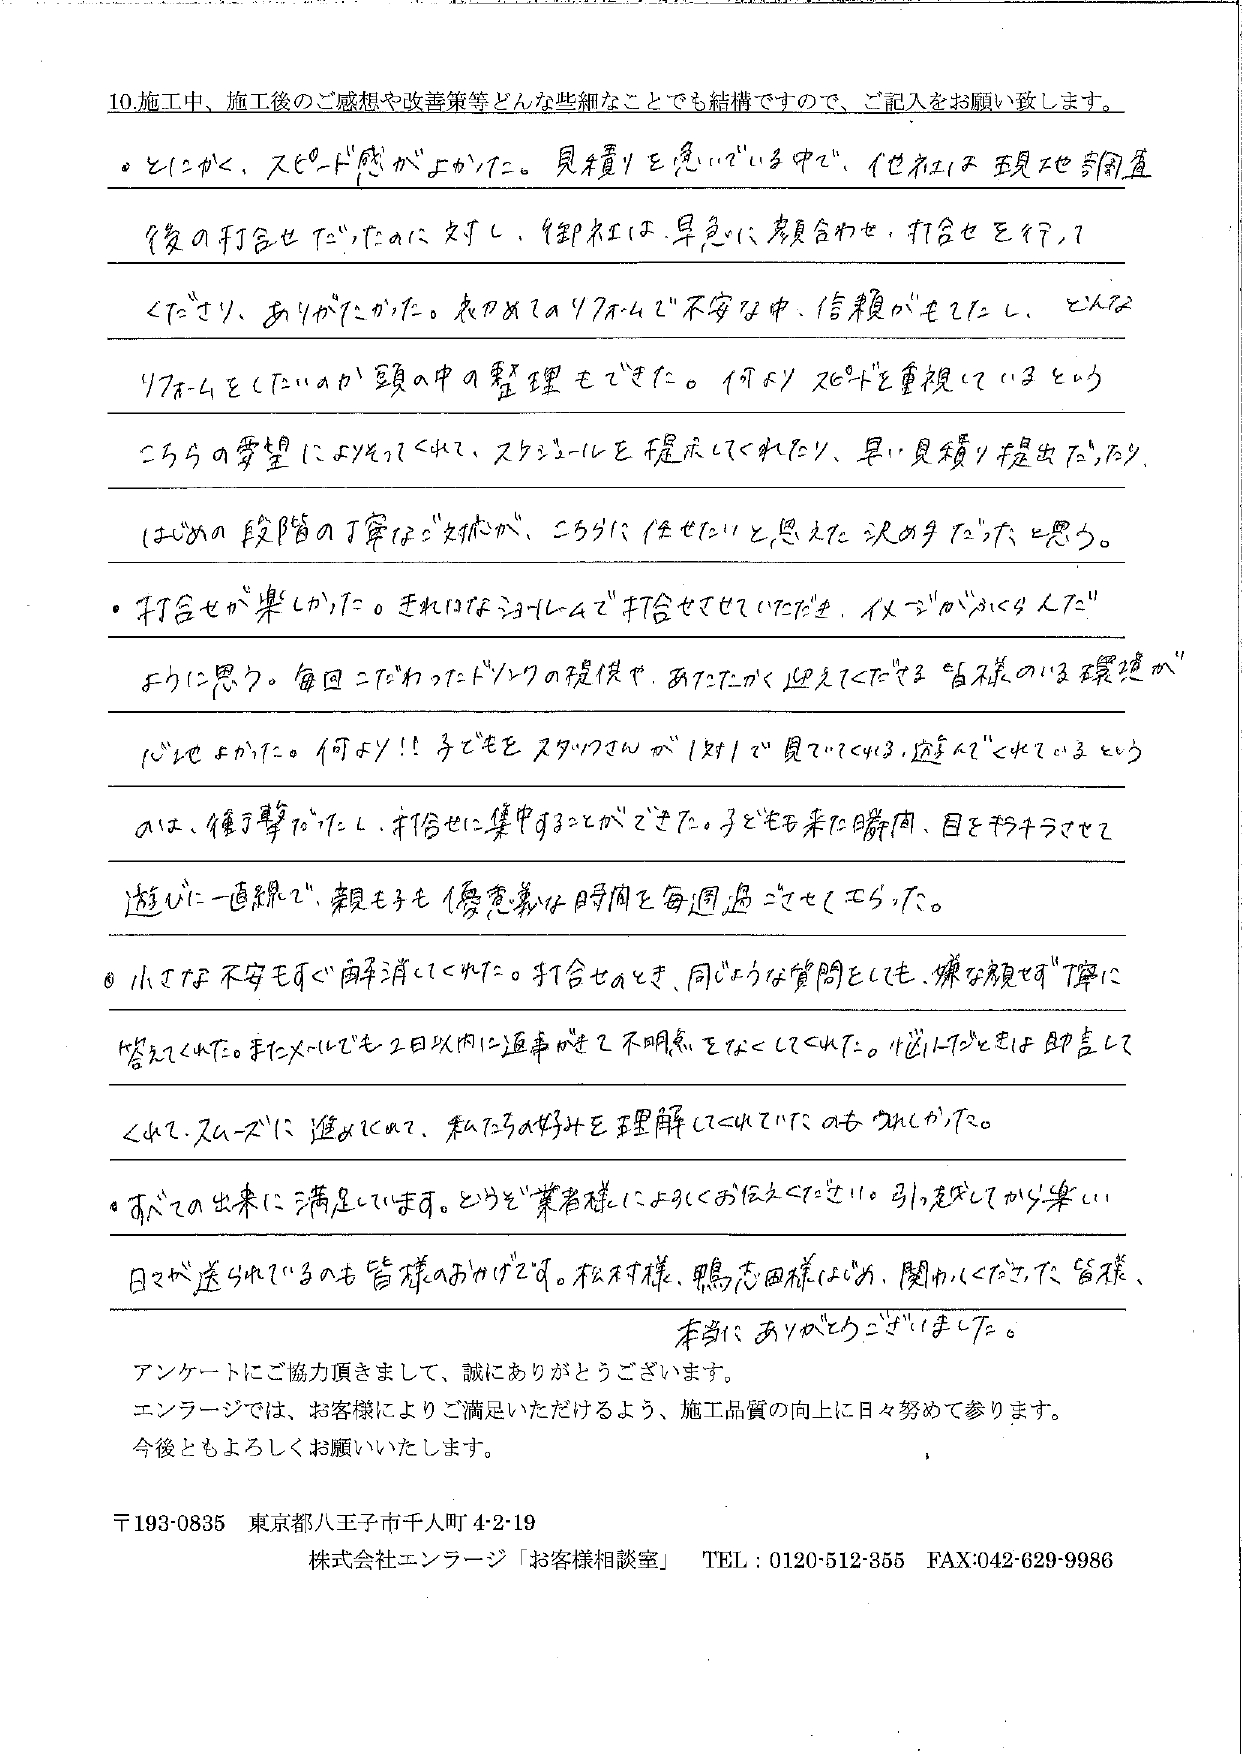 10.施工中、施工後のご感想や改善策等どんな些細なことでも結構ですので、ご記入をお願い致します。
・とにかく、スピード感がよかった。見積りを急いでいる中で、他社は現地調査
後の打合せだったのに対し、御社は早急に顔合わせ、打合せを行って
くださり、ありがたかった。初めてのリフォームで不安な中、信頼がもてたし、どんな
リフォームをしたいのか頭の中の整理もできた。何よりスピードを重視しているという
こちらの要望によりそってくれて、スケジュールを提示してくれたり、早い見積り提出だったり、
はじめの段階の丁寧なご対応が、こちらに任せたいと思えた決め手だったと思う。
・打合せが楽しかった。きれいなショールームで打合せさせていただき、イメージがふくらんだ
ように思う。毎回こだわったドリンクの提供や、あたたかく迎えてくださる皆様のいる環境が
心地よかった。何より!!子どもをスタッフさんが1対1で見ていてくれる、遊んでくれているという
のは、衝撃だったし、打合せに集中することができた。子どもも来た瞬間、目をキラキラさせて
遊びに一直線で、親も子も優意義な時間を毎週過ごさせてもらった。
◎小さな不安もすぐ解消してくれた。打合せのとき、同じような質問をしても、嫌な顔せず丁寧に
答えてくれた。またメールでも2日以内に返事がきて不明点をなくしてくれた。悩んだときは助言して
くれて、スムーズに進めてくれて、私たちの好みを理解してくれていたのもうれしかった。
・すべての出来に満足しています。どうぞ業者様によろしくお伝えください。引っ越してから楽しい
日々が送られているのも皆様のおかげです。松村様、鴨志田様はじめ、関わってくださった皆様、
本当にありがとうございました。
アンケートにご協力頂きまして、誠にありがとうございます。
エンラージでは、お客様によりご満足いただけるよう、施工品質の向上に日々努めて参ります。
今後ともよろしくお願いいたします。
〒193-0835 東京都八王子市千人町 4-2-19
株式会社エンラージ「お客様相談室」 TEL：0120-512-355 FAX:042-629-9986